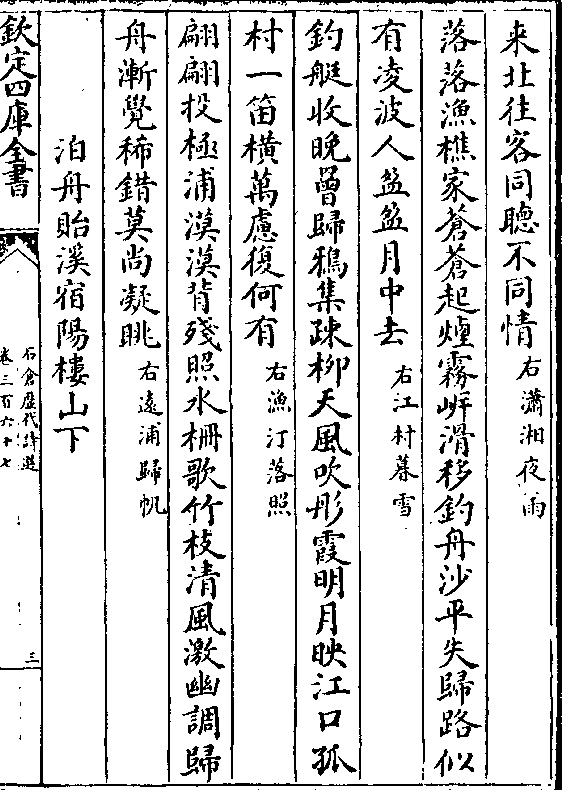 来北往客同聽不同情 右瀟湘夜雨
落落漁樵家蒼蒼起煙霧岸滑移釣舟沙平失歸路似
有凌波人盆盆月中去 右江村暮雪
釣艇收晚罾歸鴉集疎柳天風吹彤霞明月映江口孤
村一笛橫萬慮復何有 右漁汀落照
翩翩投極浦漠漠背殘照水柵歌竹枝清風激幽調歸
舟漸覺稀錯莫尚凝眺 右遠浦歸帆
泊舟貽溪宿陽樓山下
欽定四庫全書
石倉歷代詩選
卷三百六十七
三